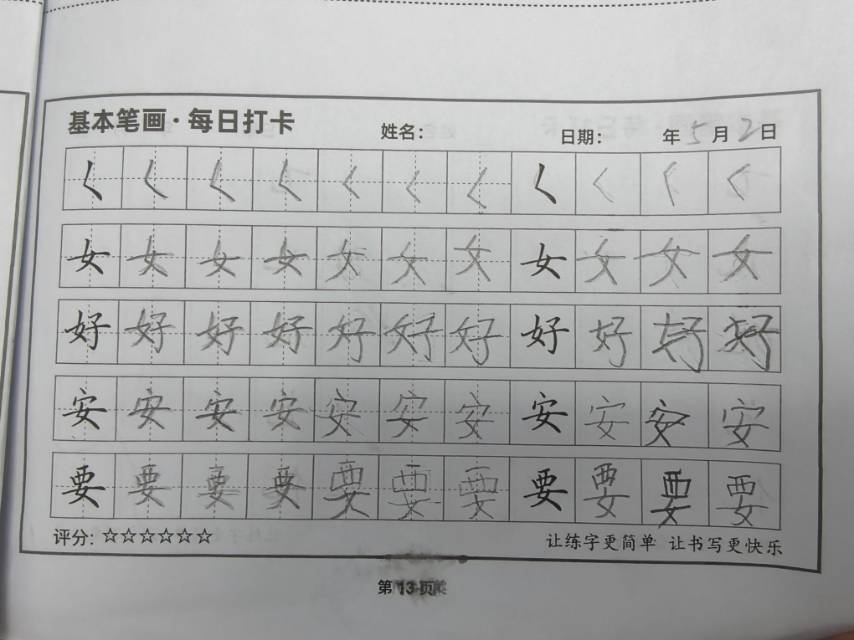 基本笔画·每日打卡 姓名： 日期： 年5月2日
く く く く く く く く く く く
女 女 女 女 女 女 女 女 女 女 女
好 好 好 好 好 好 好 好 好 好 好
安 安 安 安 安 安 安 安 安 安 安
要 要 要 要 要 要 要 要 要 要 要
评分：☆☆☆☆☆☆ 让练字更简单 让书写更快乐
第13页